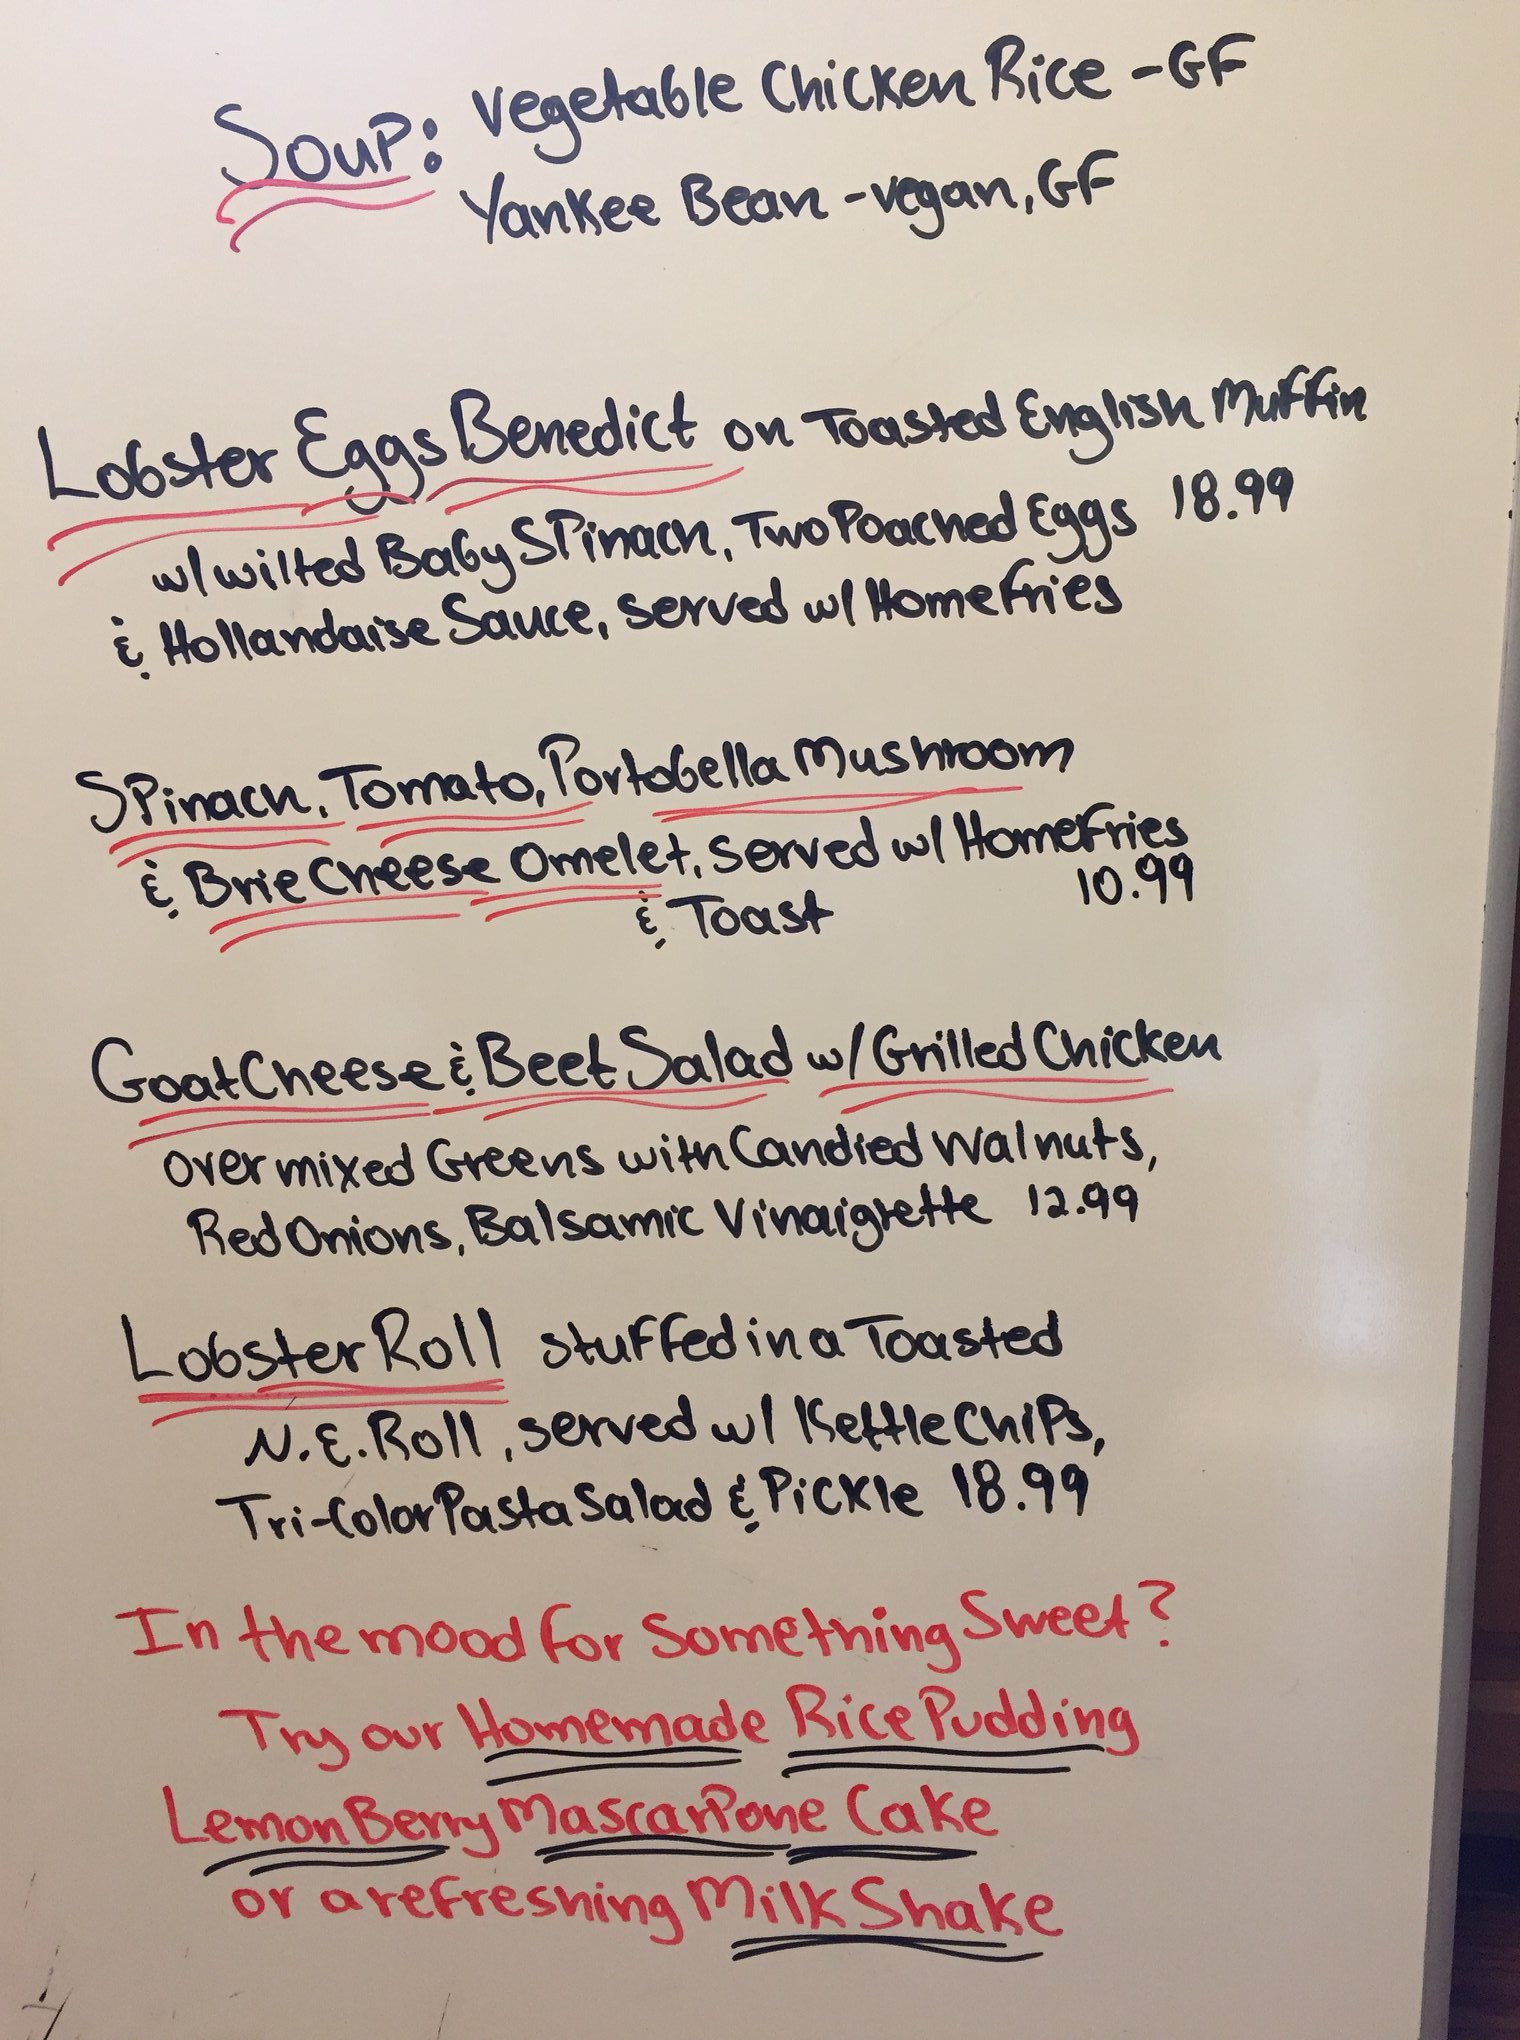 Soup: Vegetable Chicken Rice - GF
Yankee Bean - vegan, GF
Lobster Eggs Benedict on Toasted English Muffin
w/ wilted Baby Spinach, Two Poached Eggs 18.99
& Hollandaise Sauce, served w/ Homefries
Spinach, Tomato, Portobella Mushroom
& Brie Cheese Omelet, served w/ Homefries
& Toast 10.99
Goat Cheese & Beet Salad w/ Grilled Chicken
over mixed Greens with Candied Walnuts,
Red Onions, Balsamic Vinaigrette 12.99
Lobster Roll stuffed in a Toasted
N.E. Roll, served w/ Kettle Chips,
Tri-Color Pasta Salad & Pickle 18.99
In the mood for Something Sweet?
Try our Homemade Rice Pudding
Lemon Berry Mascarpone Cake
or a refreshing Milk Shake